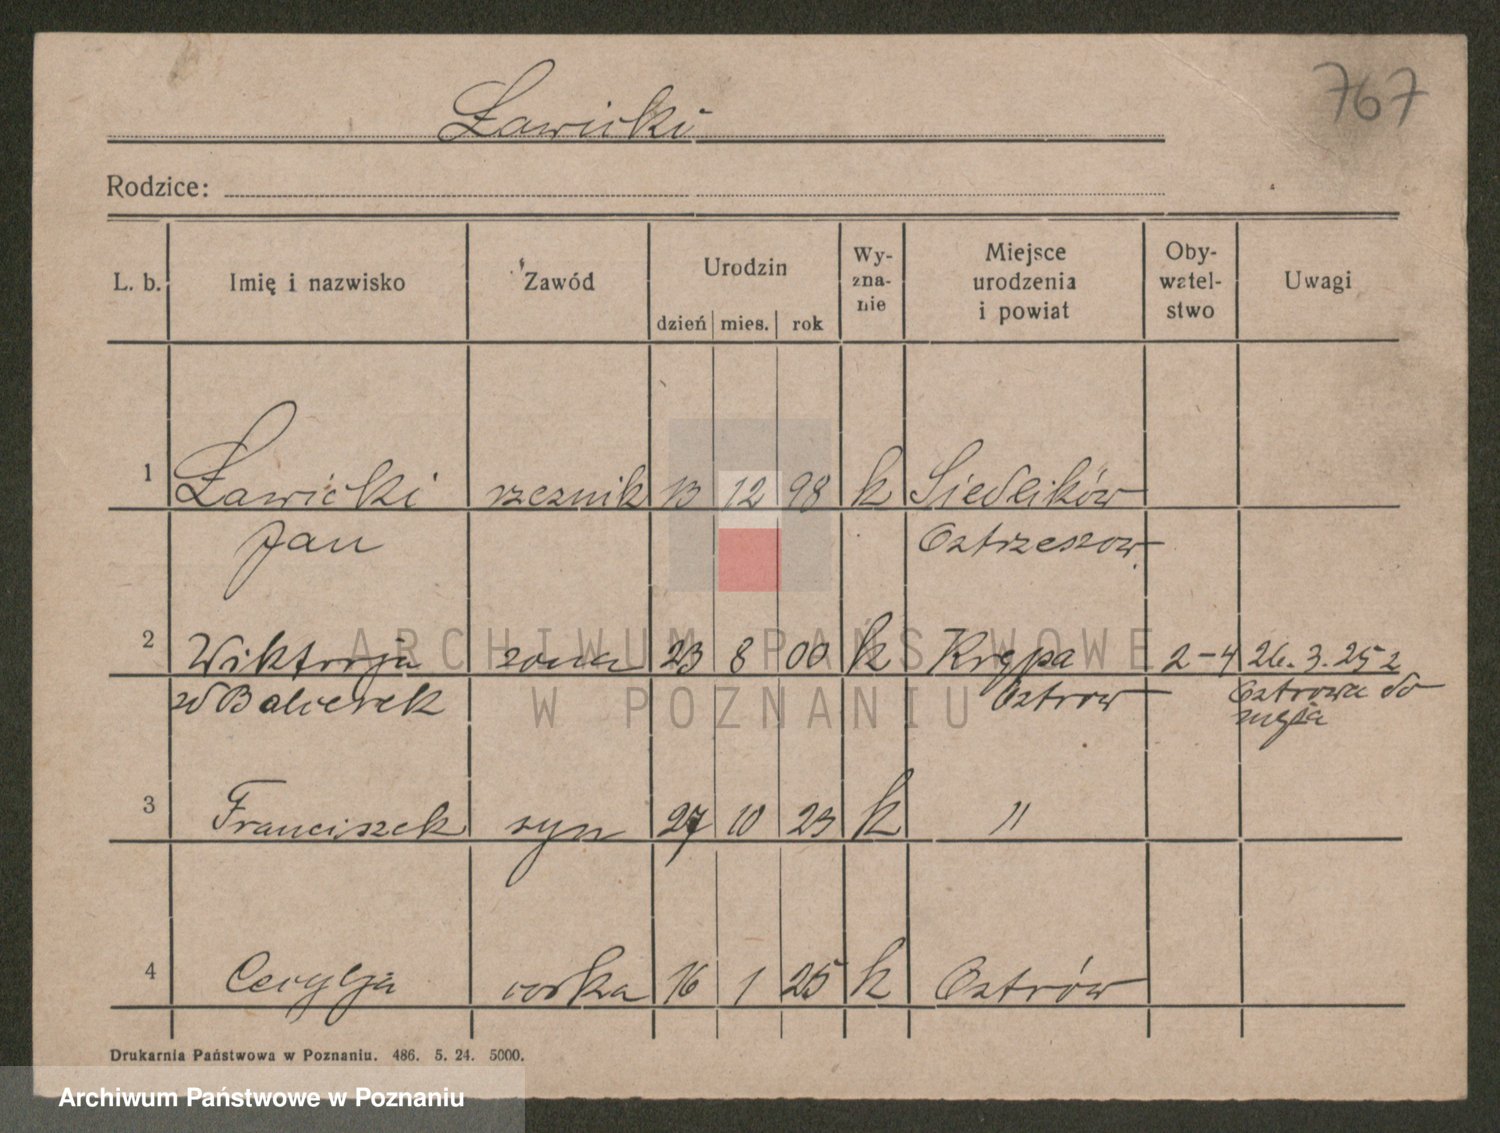 767
Ławicki
Rodzice:
L. b. Imię i nazwisko Zawód Urodzin dzień mies. rok Wy-zna-nie Miejsce urodzenia i powiat Oby-watel-stwo Uwagi
1 Ławicki rzeznik 13 12 98 k Siedlików
Jan Ostrzeszow
2 Wiktorja żona 23 8 00 k Krępa 2-4 26.3.25 z
Ostrów Ostrowa do
męża
3 Franciszek syn 27 10 23 k "
4 Cecylja corka 16 1 25 k Ostrów
Drukarnia Państwowa w Poznaniu. 486. 5. 24. 5000.
ARCHIWUM PAŃSTWOWE
W POZNANIU
Archiwum Państwowe w Poznaniu